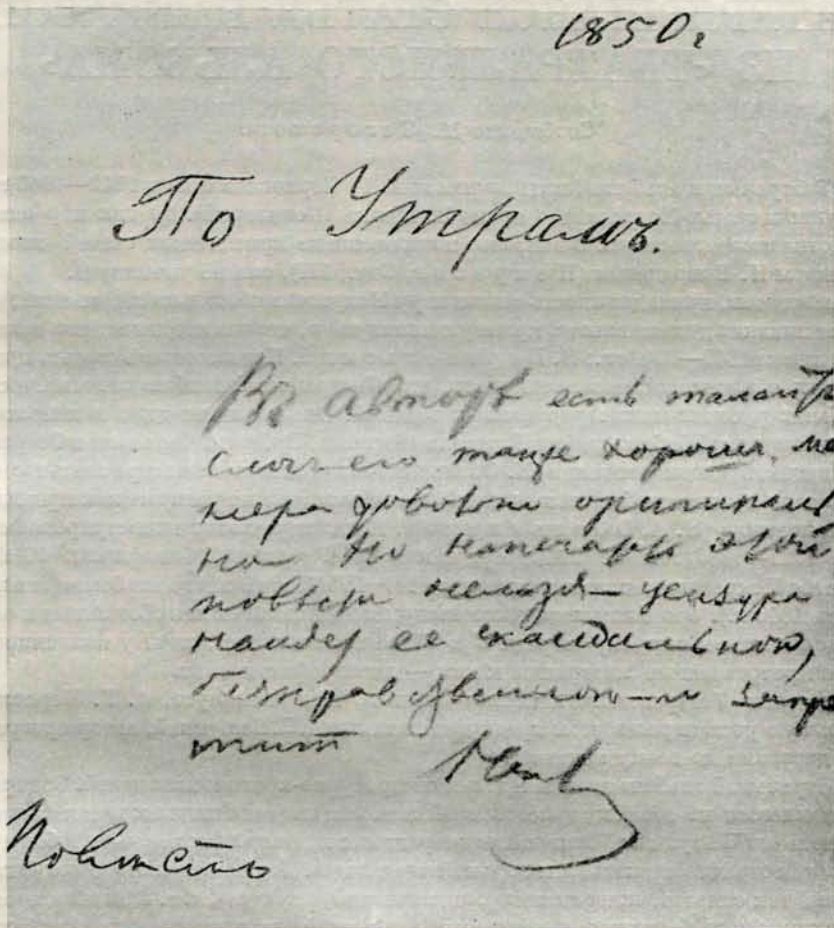 1850 г
По Утрамъ.
Въ авторѣ есть талантъ
слогъ его также хорошъ, ма
нера довольно оригиналь
на Но напечатать этой
повести нельзя — цензура
найдет ее скандальною,
безнравственною — и запре
тит
Повесть